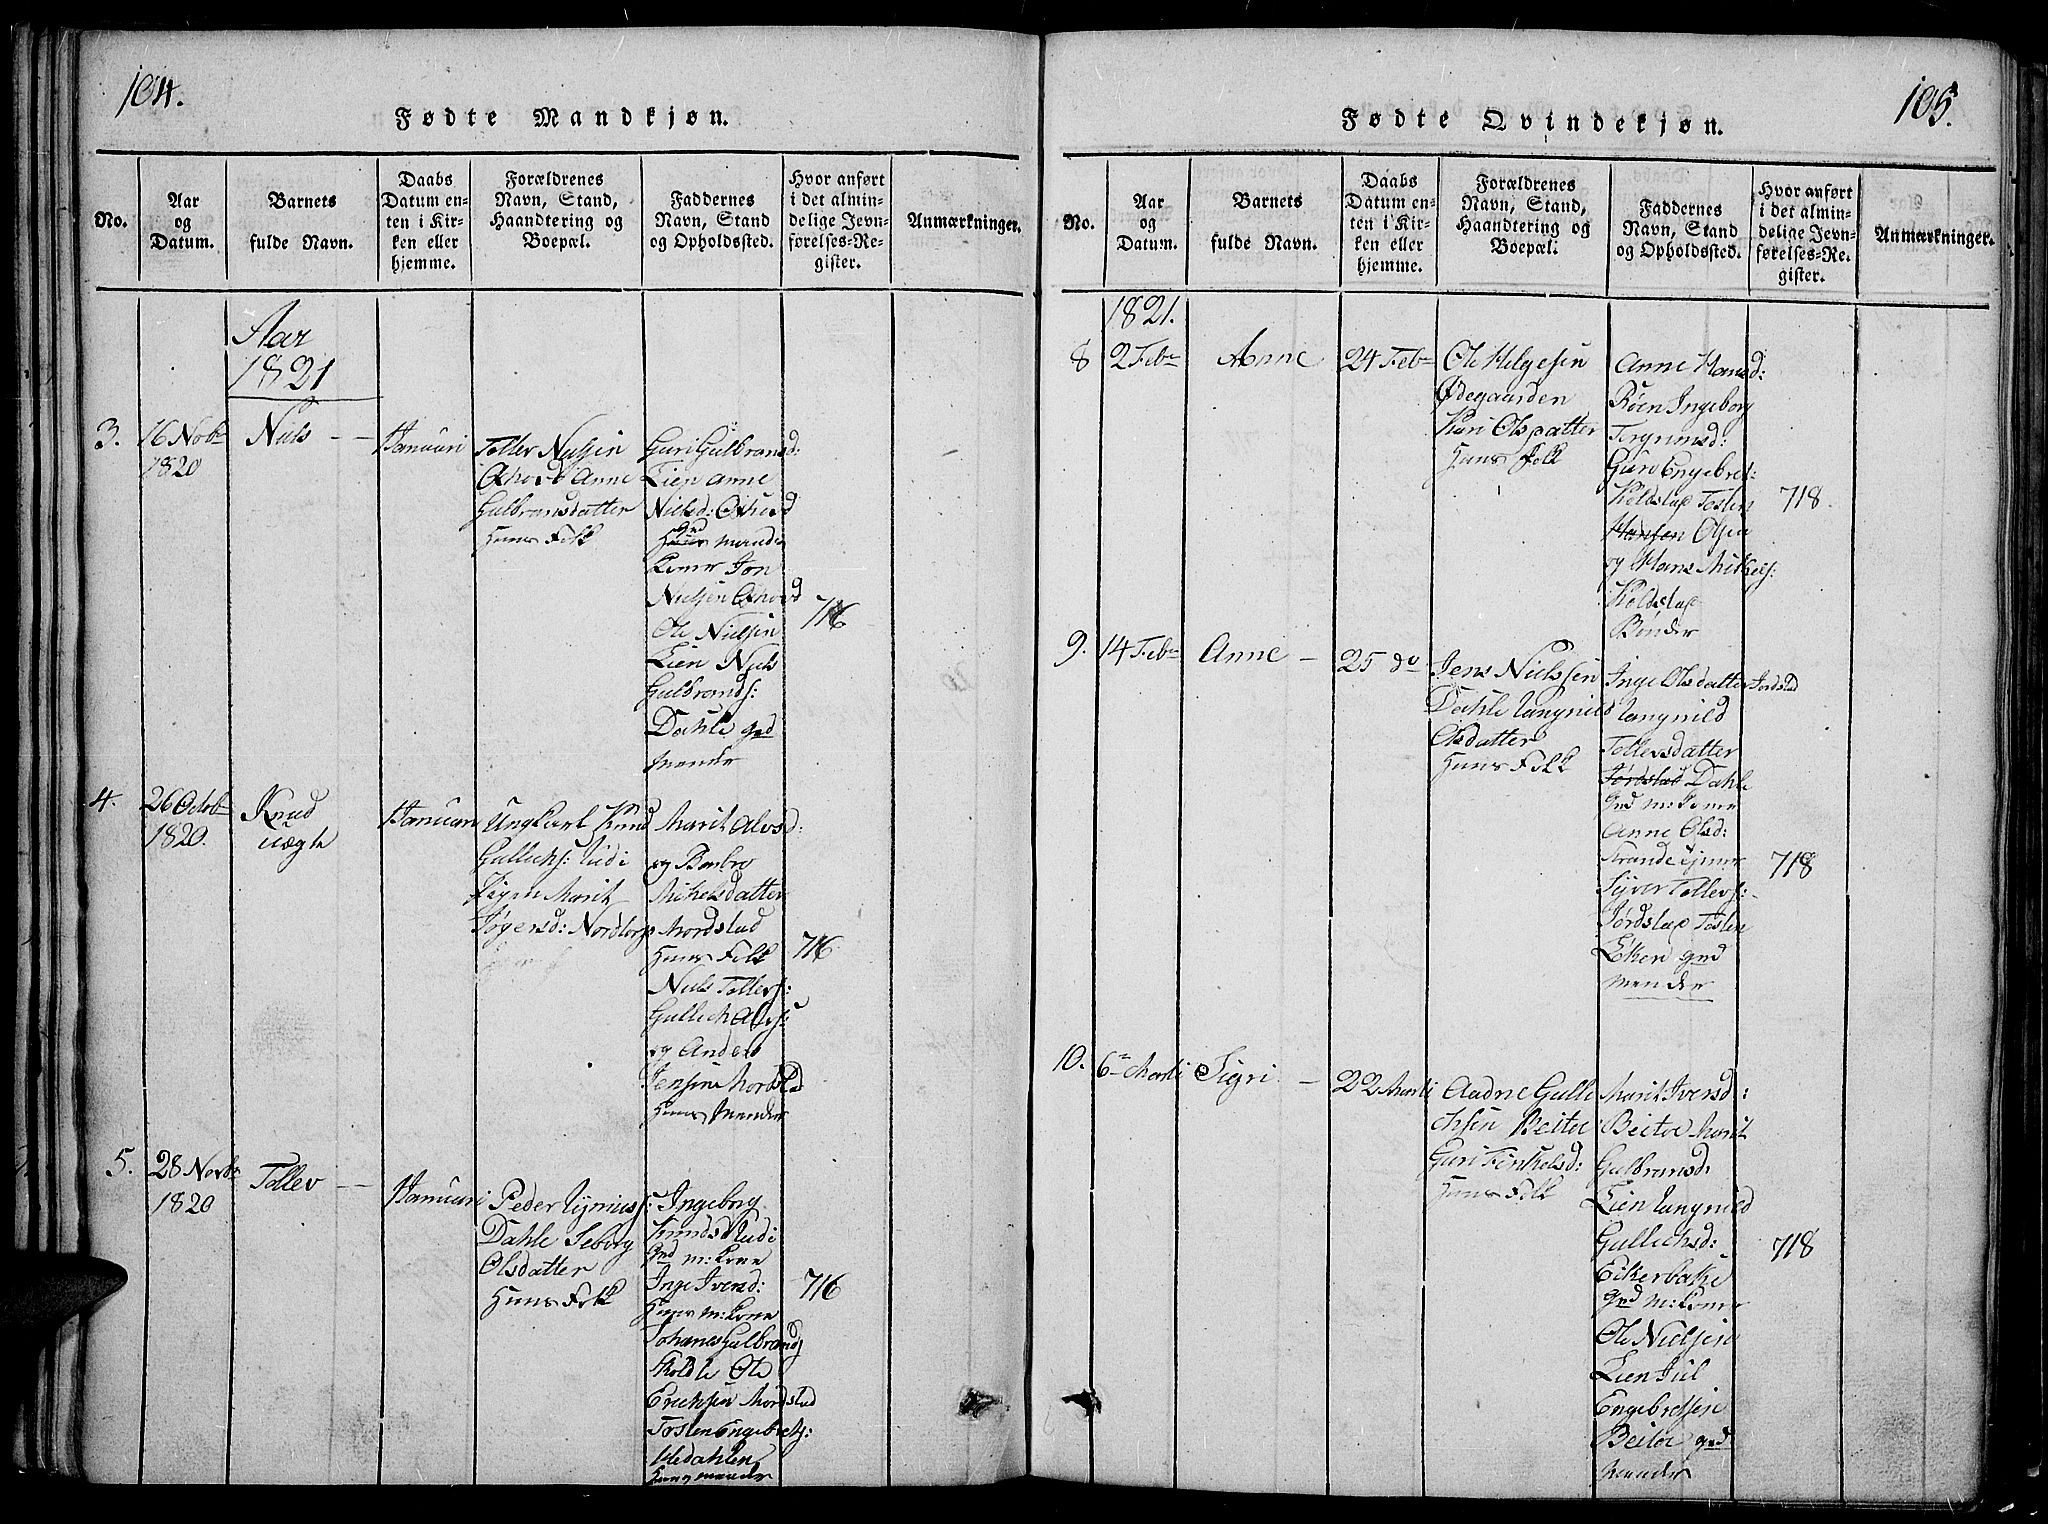 104.
Fødte Mandkjøn.
No.
Aar
og
Datum.
Barnets
fulde Navn.
Daabs
Datum en-
ten i Kir-
ken eller
hjemme.
Forældrenes
Navn, Stand,
Haandtering og
Boepæl.
Faddernes
Navn, Stand
og Opholdssted.
Hvor anført
i det almin-
delige Jevn-
førelses-Re-
gister.
Anmærkninger.
Aar
1821
3.
16 Nobr
1820
Niels
Januari
Toller Nielsen
Anne
Gulbransdatter
Huus Folk
Guri Gulbransd:
Lien Anne
Nielsd:
grd
mend
koner Jon
Nielsen
Ole Nielsen
Lien Niels
Gulbrands:
Dahle grd
mender
716
4.
26 Octobr
1820.
Knud
uægte
Januari
Ungkarl Knud
Gullichs: Ludi
Pigen Marit
Nordtorp
Marit Alvsd:
og Barbro
Mikelsdatter
Mordstad
Huus Folk
Niels Tollevs:
Gullich Alvs:
og Anders
Jensen
Huus Mender
716
5.
28 Novbr
1820
Tollev
Januari
Peder
Dahle Seborg
Olsdatter
Huus Folk
Ingeborg
Knudsd Ludi
grd m: kone
Inge Iversd:
Huus m: kone
Johanes Gulbrands
Ole
Erichsen Mordstad
Tosten Engebrets:
Medahlen
Huus mender
716
105.
Fødte Qvindekjøn.
No.
Aar
og
Datum.
Barnets
fulde Navn.
Daabs
Datum en-
ten i Kir-
ken eller
hjemme.
Forældrenes
Navn, Stand,
Haandtering og
Boepæl.
Faddernes
Navn, Stand
og Opholdssted.
Hvor anført
i det almin-
delige Jevn-
førelses-Re-
gister.
Anmærkninger.
1821.
8
2 Febr
Anne
24 Febr
Ole Helgesen
Ødegaarden
Kari Olsdatter
Huus Folk
Anne Hansd:
Røen Ingeborg
Tergrimsd:
Guro Engebretd:
Tosten
Hansen Olsen
og Hans Mikels:
Bønder
718
9.
14 Febr
Anne
25 do
Jens Nielssen
Dahle Langnild
Olsdatter
Huus Folk
Inge Olsdatter Jordstad
Langnild
Tollevsdatter
Jordstad Dahle
grd m: kone
Anne Olsd:
Strande
Syver Tollevs:
Tosten
Eken grd
mender
718
10.
6te Marti
Sigri
22 Marti
Aadne Gulle
chsen Beitoe
Guri Finkelsd:
Huus Folk
Marit Iversd:
Beitoe Marit
Gulbransd:
Lien Langnild
Gullichsd:
Eikerbake
grd m: koner
Ole Nielsen
Lien Jul
Engebretsen
Beitoe grd
mender
718